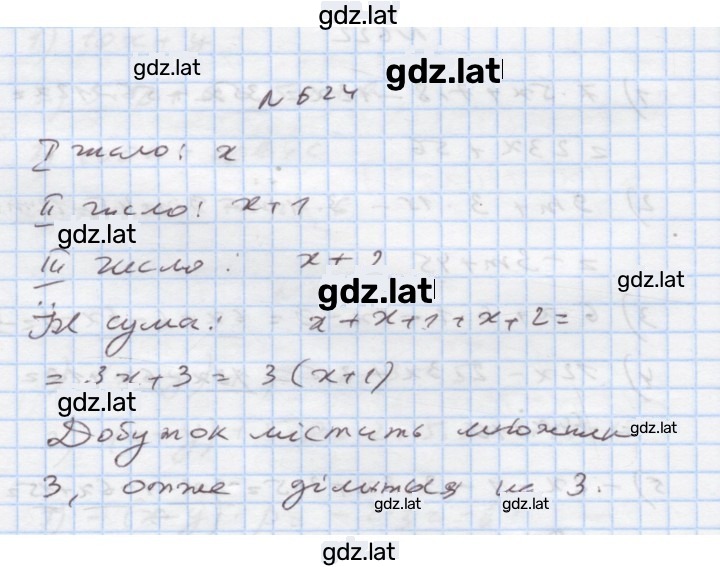 gdz.lat
gdz.lat
gdz.lat
№ 624
I число: x
II число: x+1
gdz.lat
III число: x+2
gdz.lat
gdz.lat
Їх сума: x+x+1+x+2=
= 3x+3 = 3(x+1)
gdz.lat
Добуток містить множник
gdz.lat
3, отже ділиться на 3.
gdz.lat
gdz.lat
gdz.lat